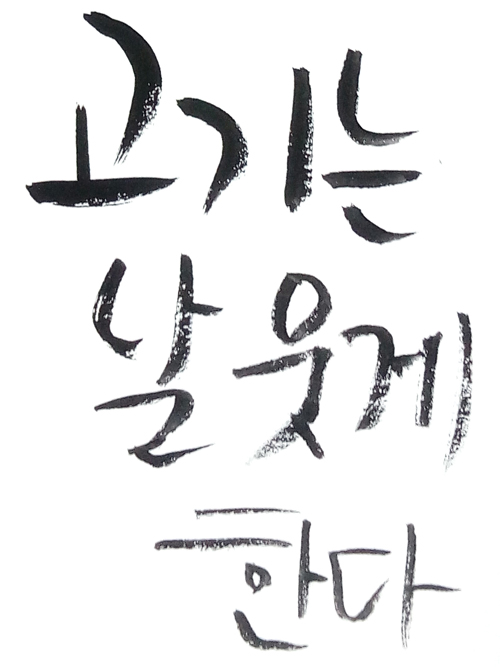 고기는
날 웃게
한다